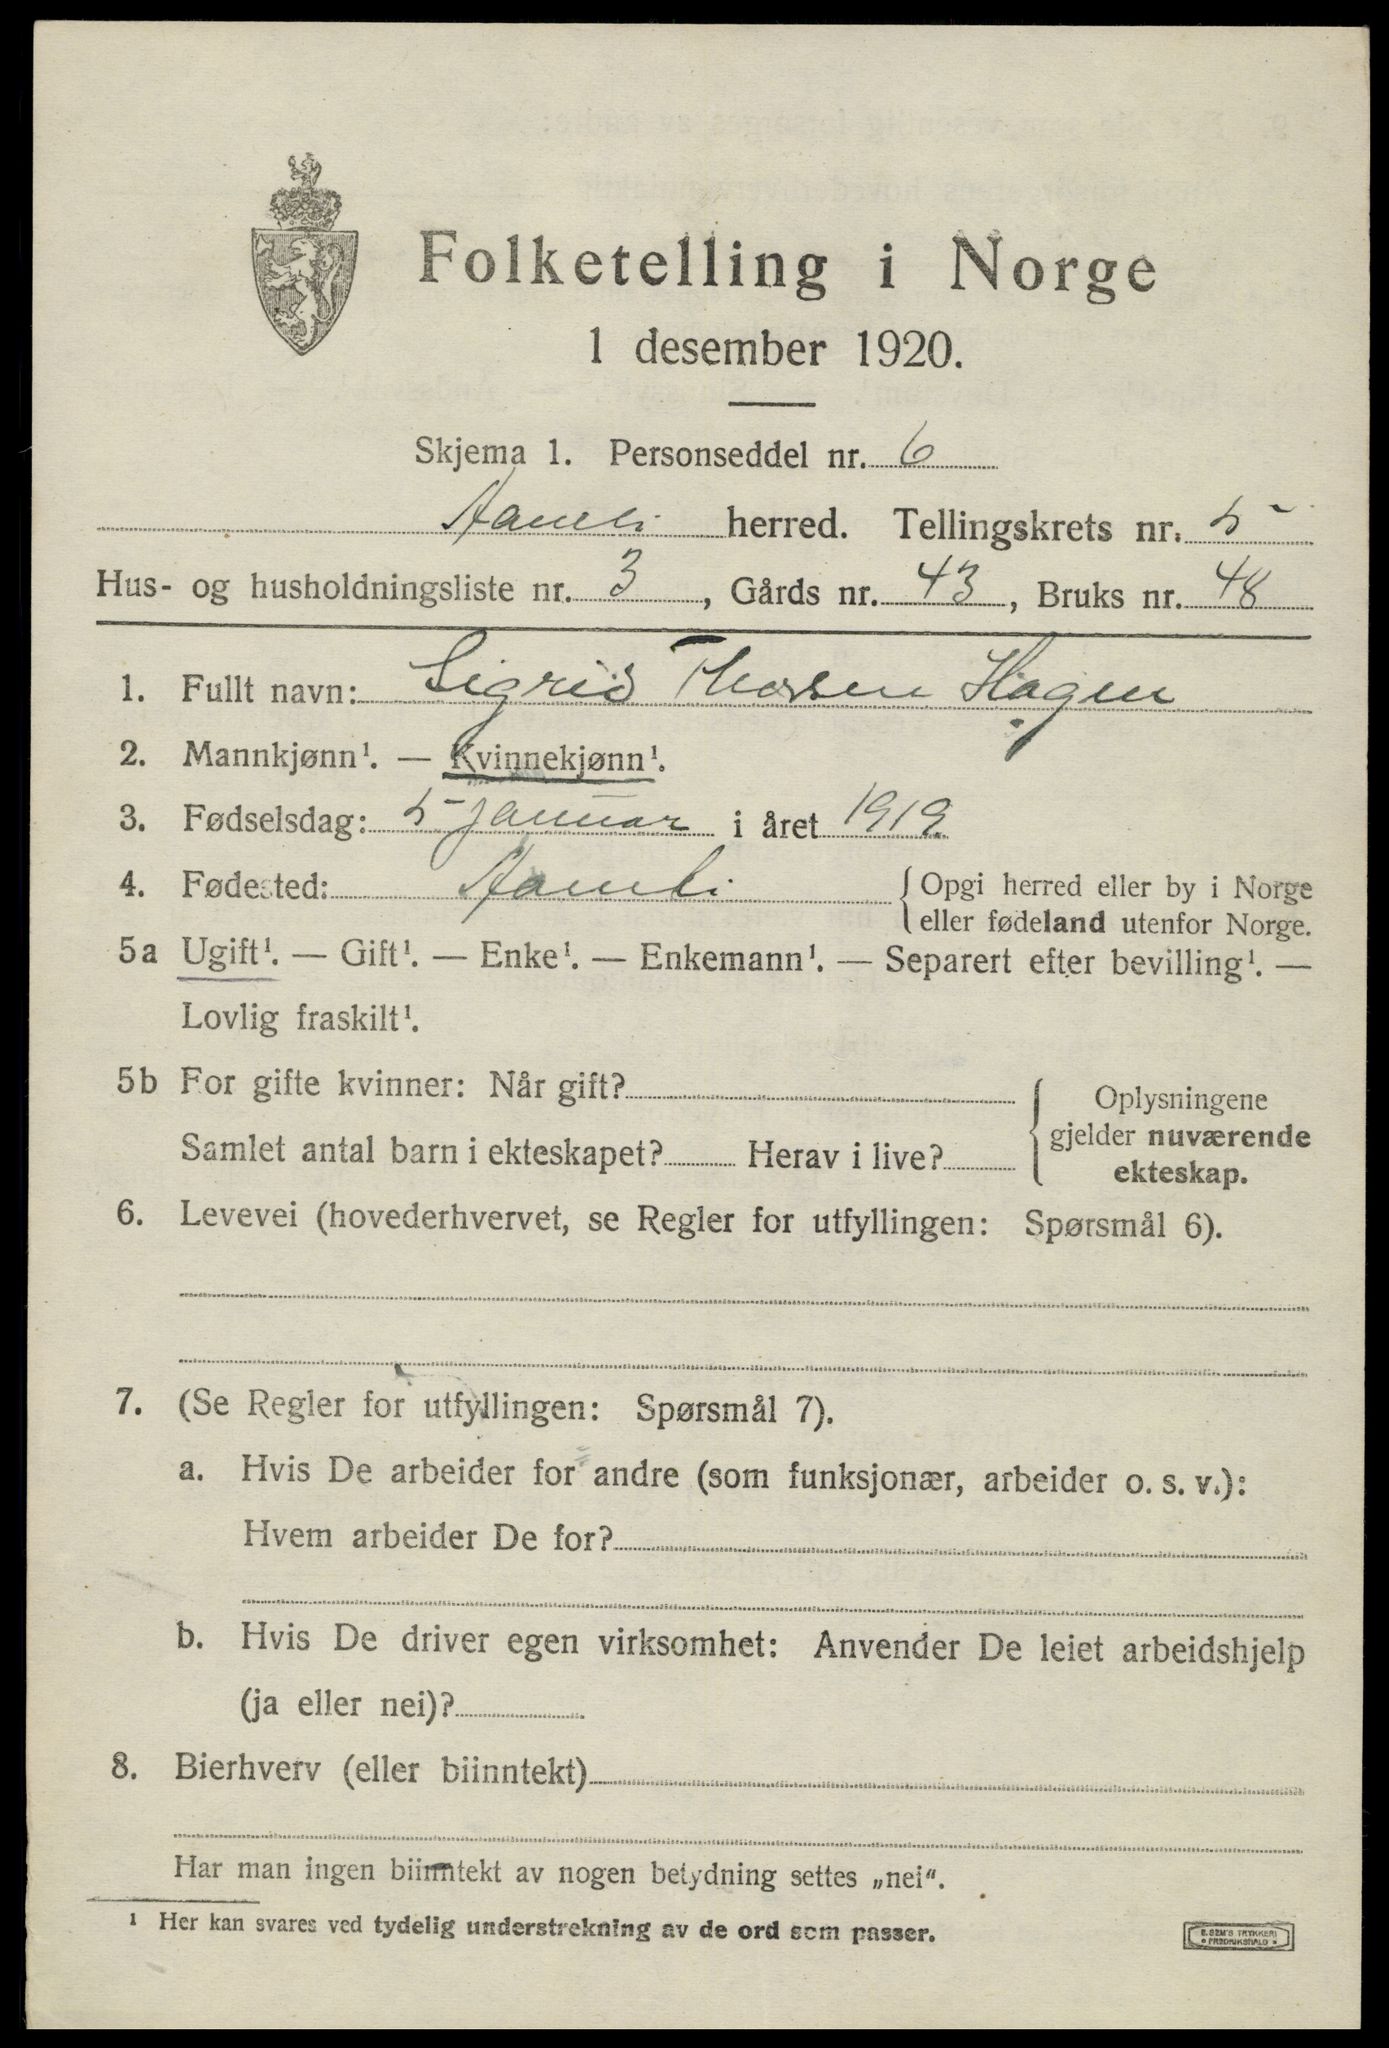 Folketelling i Norge
1 desember 1920.
Skjema 1. Personseddel nr. 6
Aamli herred. Tellingskrets nr. 5
Hus- og husholdningsliste nr. 3, Gårds nr. 43, Bruks nr. 48
1. Fullt navn: Sigrid Thorsen Hagen
2. Mannkjønn¹. — Kvinnekjønn¹.
3. Fødselsdag: 5 januar i året 1919
4. Fødested: Aamli {Opgi herred eller by i Norge
eller fødeland utenfor Norge.
5a Ugift¹. — Gift¹. — Enke¹. — Enkemann¹. — Separert efter bevilling¹. —
Lovlig fraskilt¹.
5b For gifte kvinner: Når gift?
Samlet antal barn i ekteskapet? Herav i live?
Oplysningene
gjelder nuværende
ekteskap.
6. Levevei (hovederhvervet, se Regler for utfyllingen: Spørsmål 6).
7. (Se Regler for utfyllingen: Spørsmål 7).
a. Hvis De arbeider for andre (som funksjonær, arbeider o. s. v.):
Hvem arbeider De for?
b. Hvis De driver egen virksomhet: Anvender De leiet arbeidshjelp
(ja eller nei)?
8. Bierhverv (eller biinntekt)
Har man ingen biinntekt av nogen betydning settes „nei“.
¹ Her kan svares ved tydelig understrekning av de ord som passer.
E. SEM'S TRYKKERI
FREDRIKSHALD